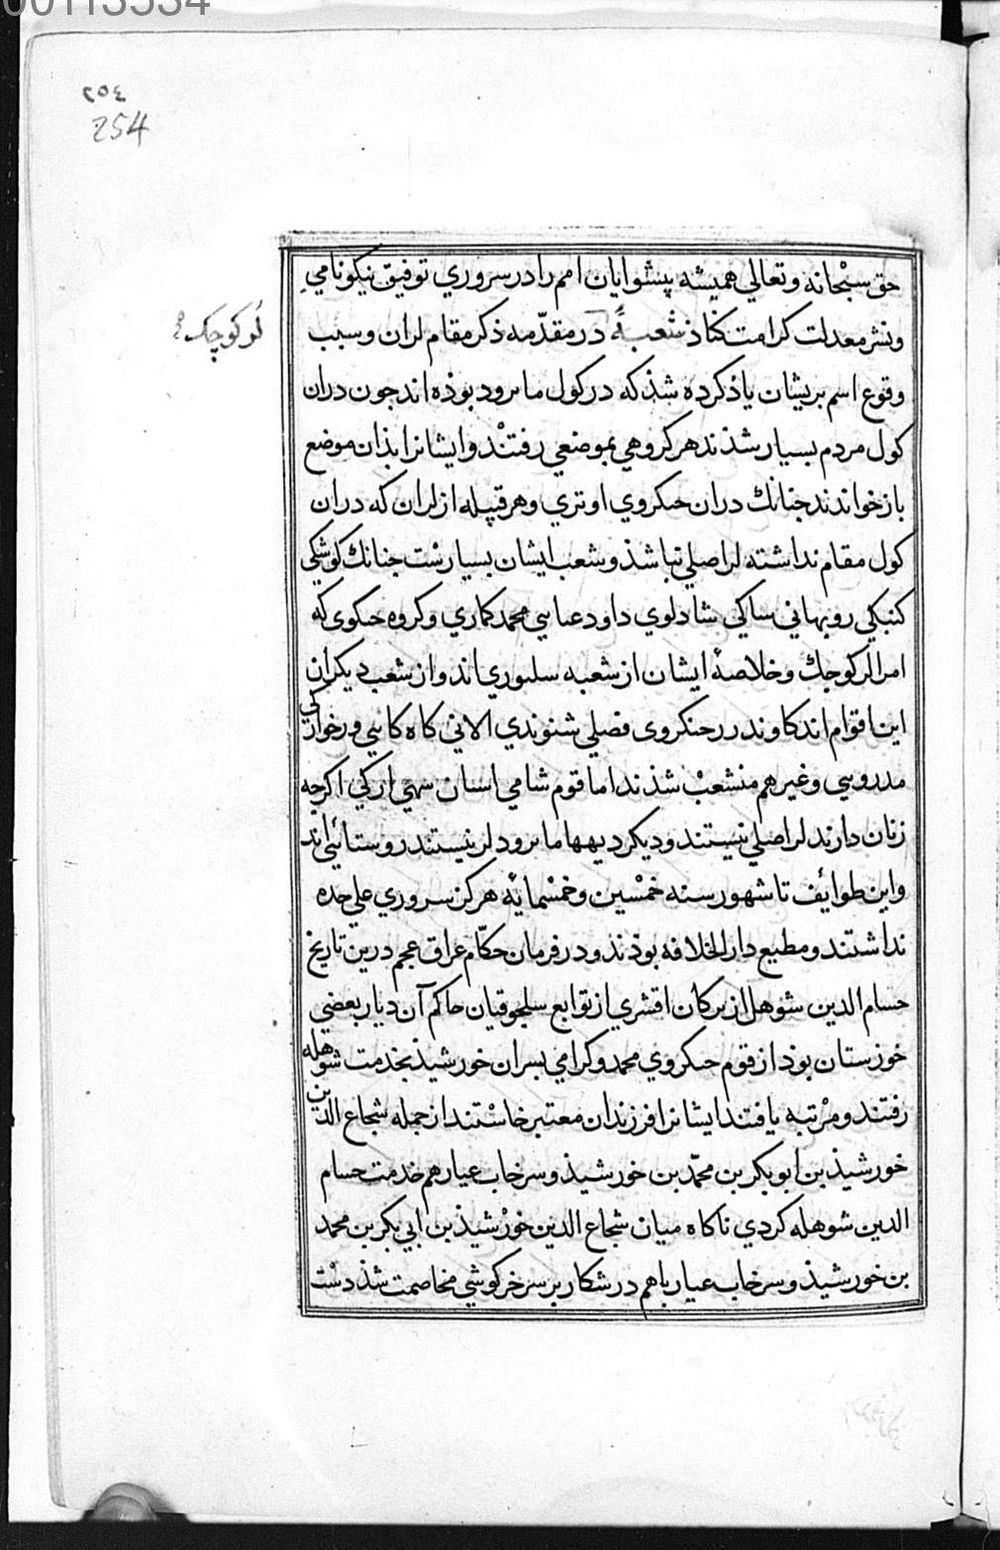 00113534
٢٥٤
254
لُر كوچك
حق سبْحانه وتعالي هميشه پيشوايان امم را در سروري توفيق نيكونامي
ونشر معدلت كرامت كناذ شعبهٔ در مقدّمه ذكر مقام لران وسبب
وقوع اسم بريشان ياذ كرده شذ كه در كول مانرود بوذه اند جون دران
كول مردم بسيار شذند هر كروهي بموضعي رفتنْد وايشانرا بذان موضع
باز خواندند جنانك دران حنكروي اوتري وهر قبيله از لران كه دران
كول مقام نداشته لر اصلي نباشذ وشعب ايشان بسيارسْت جنانك كوشكي
كنبكي روبهاني ساكي شادلوي داود عباسي محمد كماري وكروه حنكوى كه
امرا لر كوجك وخلاصهٔ ايشان از شعبه سلبوري اند واز شعب ديكران
اين اقوام اند كاوند رحنكروى فضلي شنوندي الاني كاه كاهي ورخواركي
مدروسي وغيرهم منشعبْ شذند اما قوم شامي اسان سهي اركي اكرجه
زنان دارند لر اصلي نيستند وديكر ديهها مانرود لر نيستند روستائي اند
واين طوائف تا شهور سنه خمْسين وخمسْمايْه هركز سروري علي حده
نداشتند ومطيع دار الخلافه بوذند ودر فرمان حكّام عراق عجم درين تاريخ
حسام الدين شوهل از تركان اقشري از توابع سلجوقيان حاكم آن ديار بعضي
خوزستان بوذ از قوم حنكروي محمد وكرامي بسران خورشيذ بخدمت شوهله
رفتند ومرْتبه يافتند ايشانرا فرزندان معتبر خاسْتند از جمله شجاع الدين
خورشيذ بن ابو بكر بن محمّد بن خورشيذ وسرخاب عيار هم خدمت حسام
الدين شوهله كردي ناكاه ميان شجاع الدين خورْشيذ بن ابي بكر بن محمد
بن خورشيذ وسرخاب عيار باهم در شكار بر سر خركوشي مخاصمت شذ دسْت